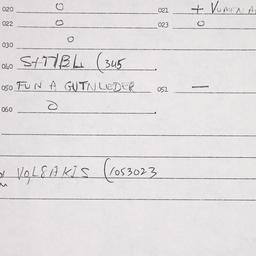 020 0 021 + VUMEN A
022 0 023 0
030 0
040 S+TTBL (345
050 FUN A GUTNLEDER 051 —
060 0
VOLSAKIS (1053023